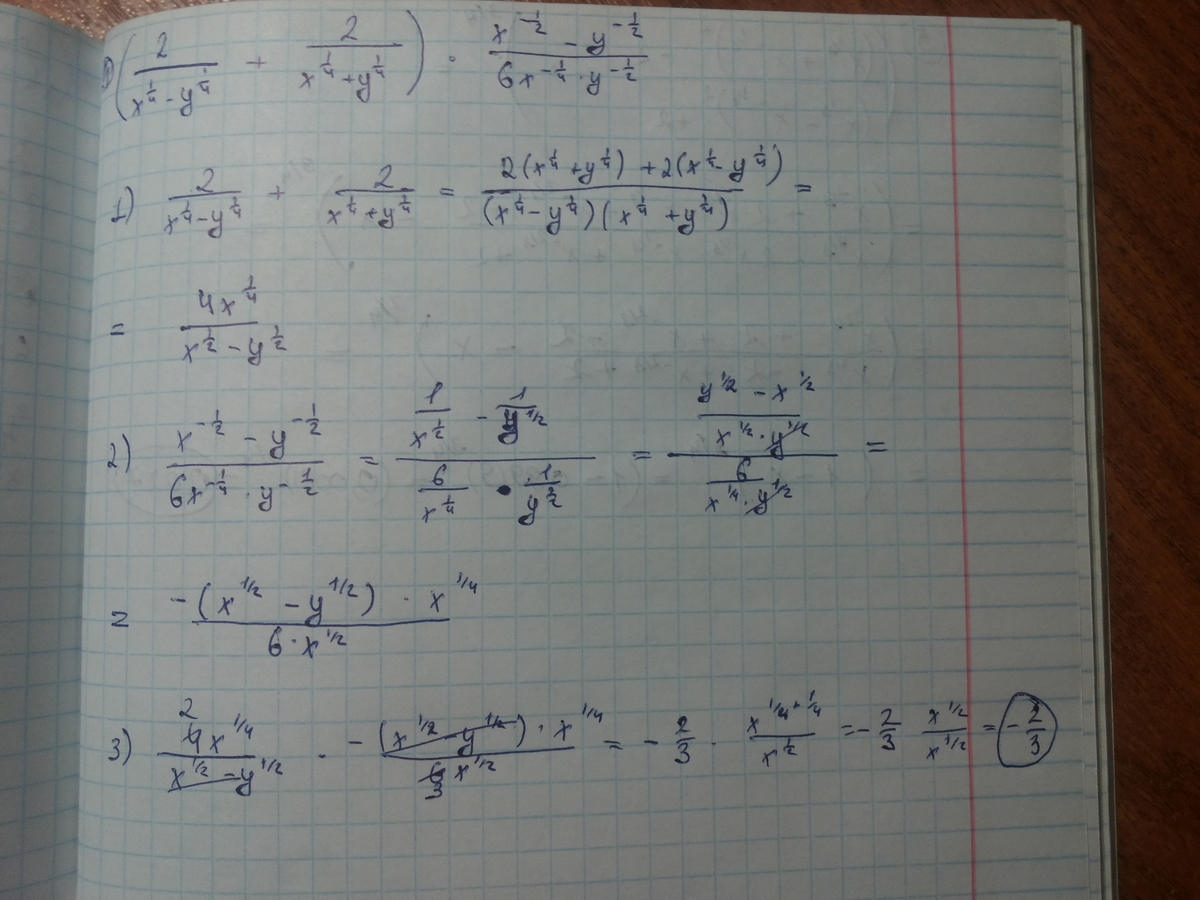 (2/(x^(1/4) − y^(1/4)) + 2/(x^(1/4) + y^(1/4))) · (x^(-1/2) − y^(-1/2))/(6x^(-1/4) · y^(-1/2))
1) 2/(x^(1/4) − y^(1/4)) + 2/(x^(1/4) + y^(1/4)) = (2(x^(1/4) + y^(1/4)) + 2(x^(1/4) − y^(1/4)))/((x^(1/4) − y^(1/4))(x^(1/4) + y^(1/4))) =
= 4x^(1/4)/(x^(1/2) − y^(1/2))
2) (x^(-1/2) − y^(-1/2))/(6x^(-1/4) · y^(-1/2)) = (1/x^(1/2) − 1/y^(1/2))/(6/x^(1/4) · 1/y^(1/2)) = ((y^(1/2) − x^(1/2))/(x^(1/2) · y^(1/2)))/(6/(x^(1/4) · y^(1/2))) =
= (−(x^(1/2) − y^(1/2)) · x^(1/4))/(6 · x^(1/2))
3) 2 4x^(1/4)/(x^(1/2) − y^(1/2)) · (−(x^(1/2) − y^(1/2)) · x^(1/4))/(6 3 x^(1/2)) = −2/3 · x^(1/4 + 1/4)/x^(1/2) = −2/3 x^(1/2)/x^(1/2) = −2/3